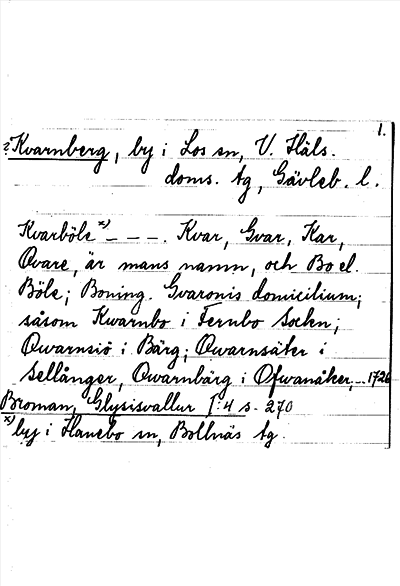 1.
? Kvarnberg, by i Los sn, V. Häls.
doms. tg, Gävleb. l.
Kvarböle x) _ _ _ . Kvar, Gvar, Kar,
Qvare, är mans namn, och Bo el.
Böle; Boning. Gvaronis domicilium;
såsom Kwarnbo i Fernbo Sockn;
Qwarnsiö i Bärg; Qwarnsäter i
Sellånger, Qwarnbärg i Ofwanåker, ... 1726
Broman, Glysisvallur I:4 s. 270
x) by i Hanebo sn, Bollnäs tg.